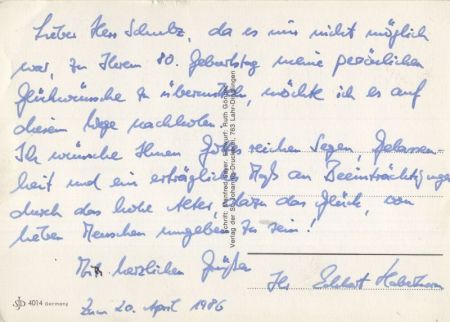 Lieber Herr Schulz, da es mir nicht möglich
war, zu Ihrem 80. Geburtstag meine persönlichen
Glückwünsche zu übermitteln, möchte ich es auf
diesem Wege nachholen.
Ihr wünsche Ihnen Gottes reichen Segen, Gelassen-
heit und ein erträgliches Maß an Beeinträchtigungen
durch das hohe Alter, dazu das Glück, von
lieben Menschen umgeben zu sein!
Mit herzlichen Grüßen
Ihr
Zum 20. April 1986
4014 Germany
Verlag der St.-Johannis-Druckerei, 763 Lahr-Dinglingen